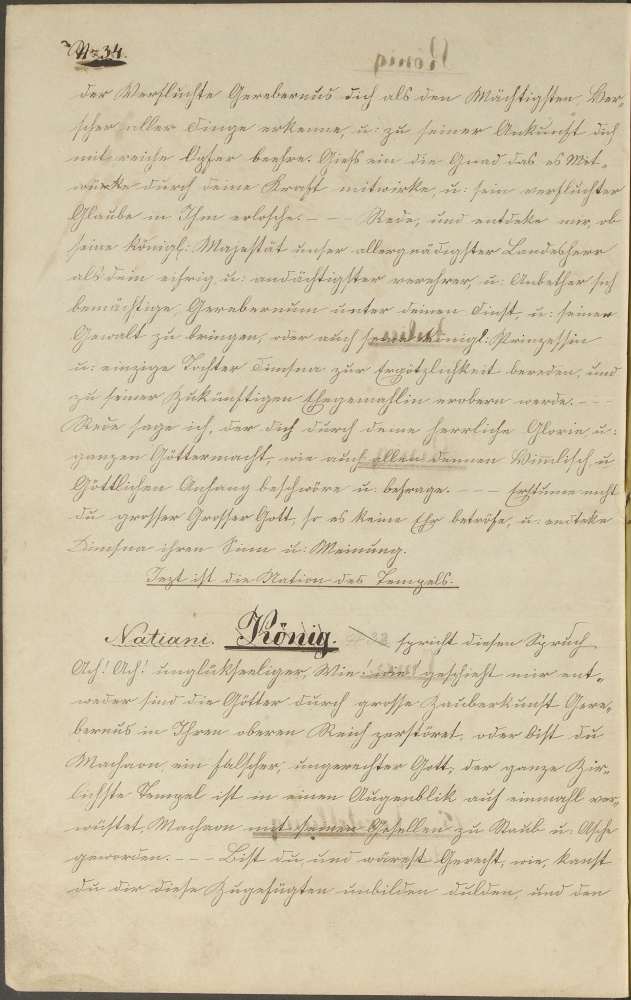 Nr 34.
der Verfluchte Gerebernus dich als den Mächtigsten, Her-
scher aller Dinge erkenne, u: zu seiner Ankunft dich
mit reiche Opfer beehre. Giess ein die Gnad das es Mit-
würke durch deine Kraft mitwirke, u: sein verfluchter
Glaube in Ihm erlosche. - - - Rede, und entdeke mir, ob
seine Königl: Majestät unser allergnädigster Landesherr
als dein eifrig u: andächtigster verehrer, u: Anbether sich
bemächtige, Gerebernum unter deinen Dinst, u: seiner
Gewalt zu bringen, oder auch seine Königl: Prinzessin
u: einzige Tochter Dimsna zur Ergötzlichkeit bereden, und
zu seiner Zukünftigen Ehegemahlin erobern werde. - - -
Rede sage ich, der dich durch deine herrliche Glorie, u:
ganzen Göttermacht, wie auch allen deinen Himlisch, u
Göttlichen Anhang beschwöre u: befrage. - - - Erstumme nicht
du grosser Grosser Gott, so es keine Ehr betröfe, u: endteke
Dimsna ihren Sinn u: Meinung.
Jezt ist die Nation des Tempels.
Natiani. König. spricht diesen Spruch
Ach! Ach! unglükseeliger, Wie! geschieht mir ent-
weder sind die Götter durch grosse Zauberkunst Gere-
bernus in Ihren oberen Reich zerstöret, oder bist du
Machaon, ein falscher, ungerechter Gott, der ganze Zir-
lichste Tempel ist in einen Augenblik auf einmahl ver-
wüstet, Machaon mit seinen Gesellen zu Staub u: Asche
geworden. - - - Bist du, und wärest Gerecht, wie, kanst
du dir diese Zugefügten unbilden dulden, und den